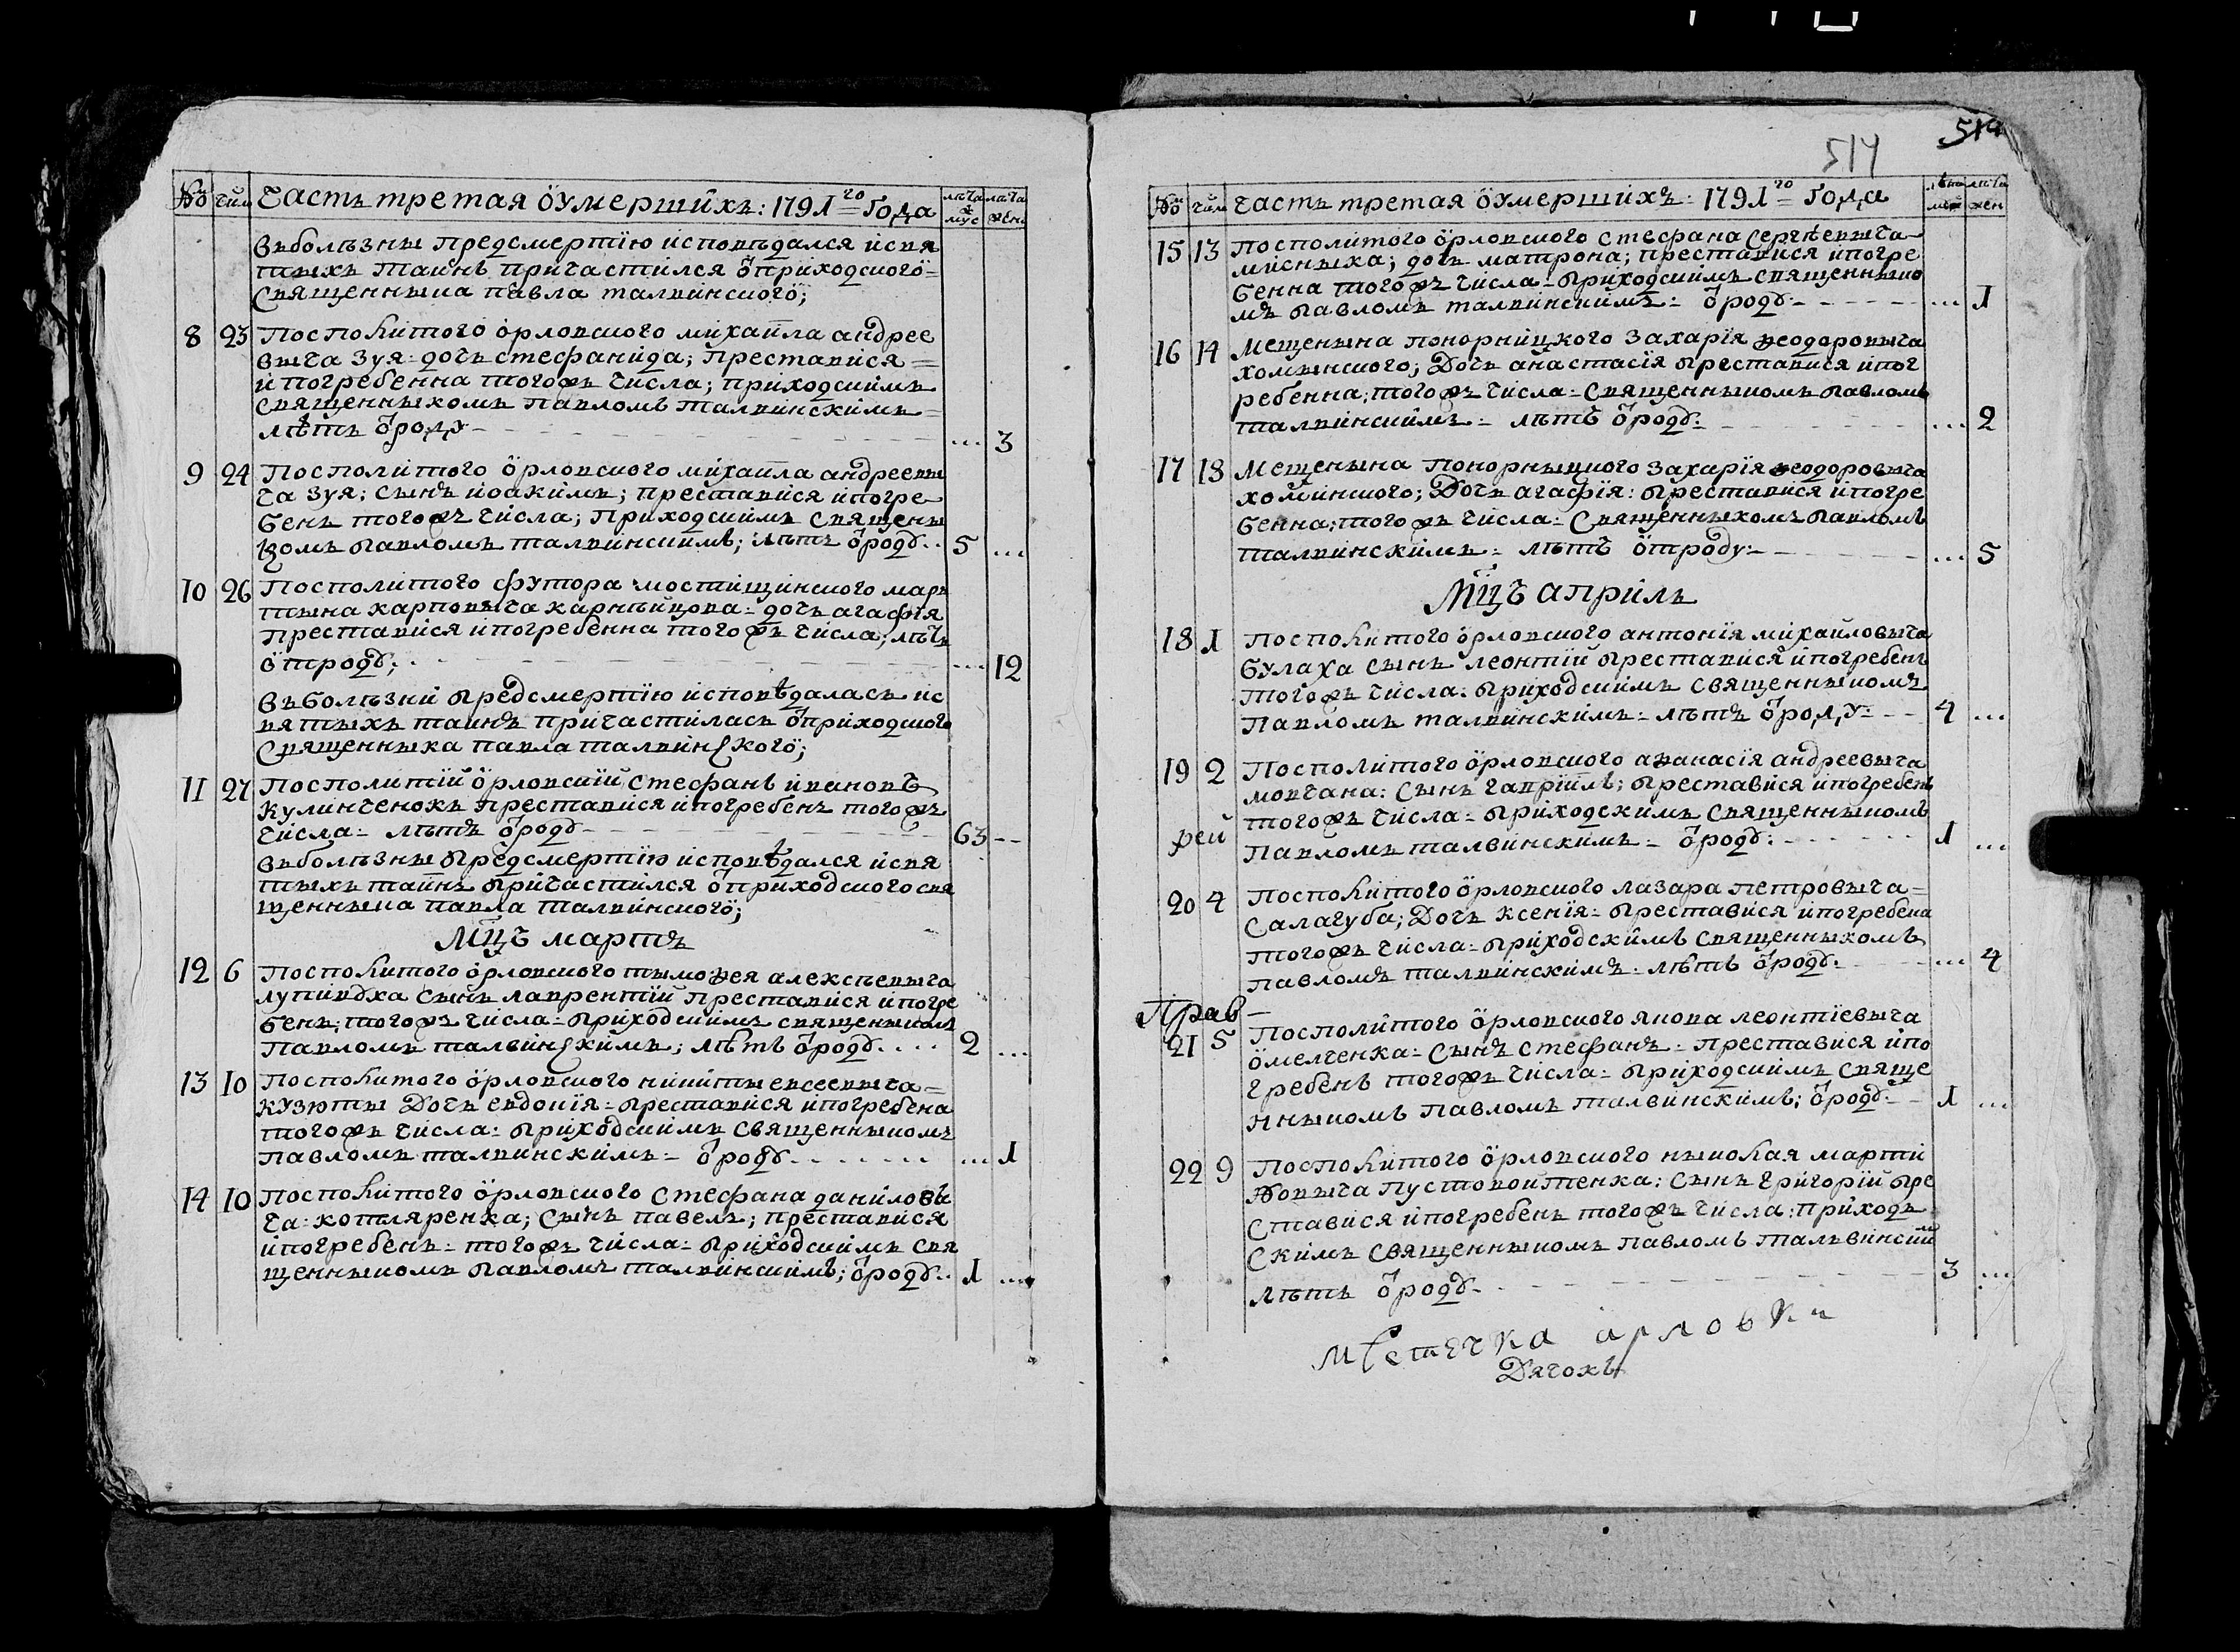 № чис Часть третая о́умершихъ: 1791го Года лѣта муж лѣта жен
въболѣзны предсмертїю исповѣдался исвя
тыхъ таинъ причастился ѿприходского
Священныка павла талвинского;
8 23 Посполитого орловского михаила андрее
выча Зуя: дочь стефанида; преставися
ипогребенна тогожъ числа; приходскимъ
священныкомъ павломъ талвинскимъ
лѣтъ ѿроду 3
9 24 Посполитого орловского михаила андреевы
ча Зуя; сынъ иоакимъ; преставися ипогре
бенъ тогожъ числа; приходскимъ священы
комъ павломъ талвинскимъ; лѣтъ ѿроду 5 ...
10 26 Посполитого футора мостищинского мар
тына карповыча карнѣйцова: дочь агафїя
преставися ипогребенна тогожъ числа; лѣтъ
ѿтроду; ... 12
въболѣзни предсмертїю исповѣдалась ис
вятыхъ таинъ причастилась ѿприходского
Священныка павла талвинского;
11 27 Посполитїй орловскїй стефанъ ивановъ
Кулинченокъ преставися ипогребенъ тогожъ
числа: лѣтъ ѿроду 63 --
въболѣзны предсмертїю исповѣдался исвя
тыхъ таинъ причастился ѿприходского свя
щенныка павла талвинского;
Мцъ мартъ
12 6 Посполитого орловского тымоѳея алексѣевыча
лупивуха сынъ лаврентїй преставися ипогре
бенъ; тогожъ числа: приходскимъ священыкомъ
Павломъ талвинскимъ; лѣтъ ѿроду 2 ...
13 10 Посполитого орловского никиты евсеевыча
кузюты Дочь евдокїя: преставися ипогребена
тогожъ числа: приходскимъ священныкомъ
Павломъ талвинскимъ: ѿроду ... 1
14 10 Посполитого орловского Стефана данилов‌ы
ча: котляренка; Сынъ павелъ; преставися
ипогребенъ: тогожъ числа: приходскимъ свя
щенныкомъ павломъ талвинскимъ; ѿроду 1 ...
514
514
№ чис Часть третая о́умершихъ: 1791го Года лѣта муж лѣта жен
15 13 посполитого орловского стефана сергѣевыча
мисныка; дочь матрона; преставися ипогре
бенна тогожъ числа: приходскимъ священныко
мъ павломъ талвинскимъ: ѿроду ... 1
16 14 Мещенына понорницкого Захарїя ѳеодоровыча
хоминского; Дочь анастасїя преставися ипог
ребенна; тогожъ числа: Священныкомъ павломъ
талвинскимъ: лѣтъ ѿроду: ... 2
17 18 Мещенына понорныцкого Захарїя ѳеодоровыча
хоминского; Дочь агафїя: преставися ипогре
бенна: тогожъ числа: Священныкомъ павломъ
талвинскимъ: лѣтъ ѿтроду: ... 5
Мцъ априль
18 1 Посполитого орловского антонїя михаиловыча
булаха сынъ леонтїй преставися ипогребенъ
тогожъ числа: приходскимъ священныкомъ
Павломъ талвинскимъ: лѣтъ ѿроду: 4 ...
19 2 Посполитого орловского аѳанасїя андреевыча
мовчана: Сынъ гаврїилъ; преставися ипогребенъ
тогожъ числа: приходскимъ священныкомъ
рей Павломъ талвинскимъ: ѿроду: 1 ...
20 4 Посполитого орловского лазара петровыча
Салагуба; Дочь ксенїя: преставися ипогребена
тогожъ числа: приходскимъ священныкомъ
павломъ талвинскимъ: лѣтъ ѿроду: ... 4
Прав
21 5 Посполитого орловского якова леонтїевыча
омелченка: Сынъ стефанъ: преставися ипо
гребенъ тогожъ числа: приходскимъ свяще
нныкомъ павломъ талвинскимъ; ѿроду: 1 ...
22 9 Посполитого орловского ныколая марти
новыча пустовойтенка: Сынъ григорїй пре
ставися ипогребенъ тогожъ числа: приходъ
скимъ священныкомъ павломъ талвинским
лѣтъ ѿроду 3 ...
мѣстечка орловки
Дячокъ